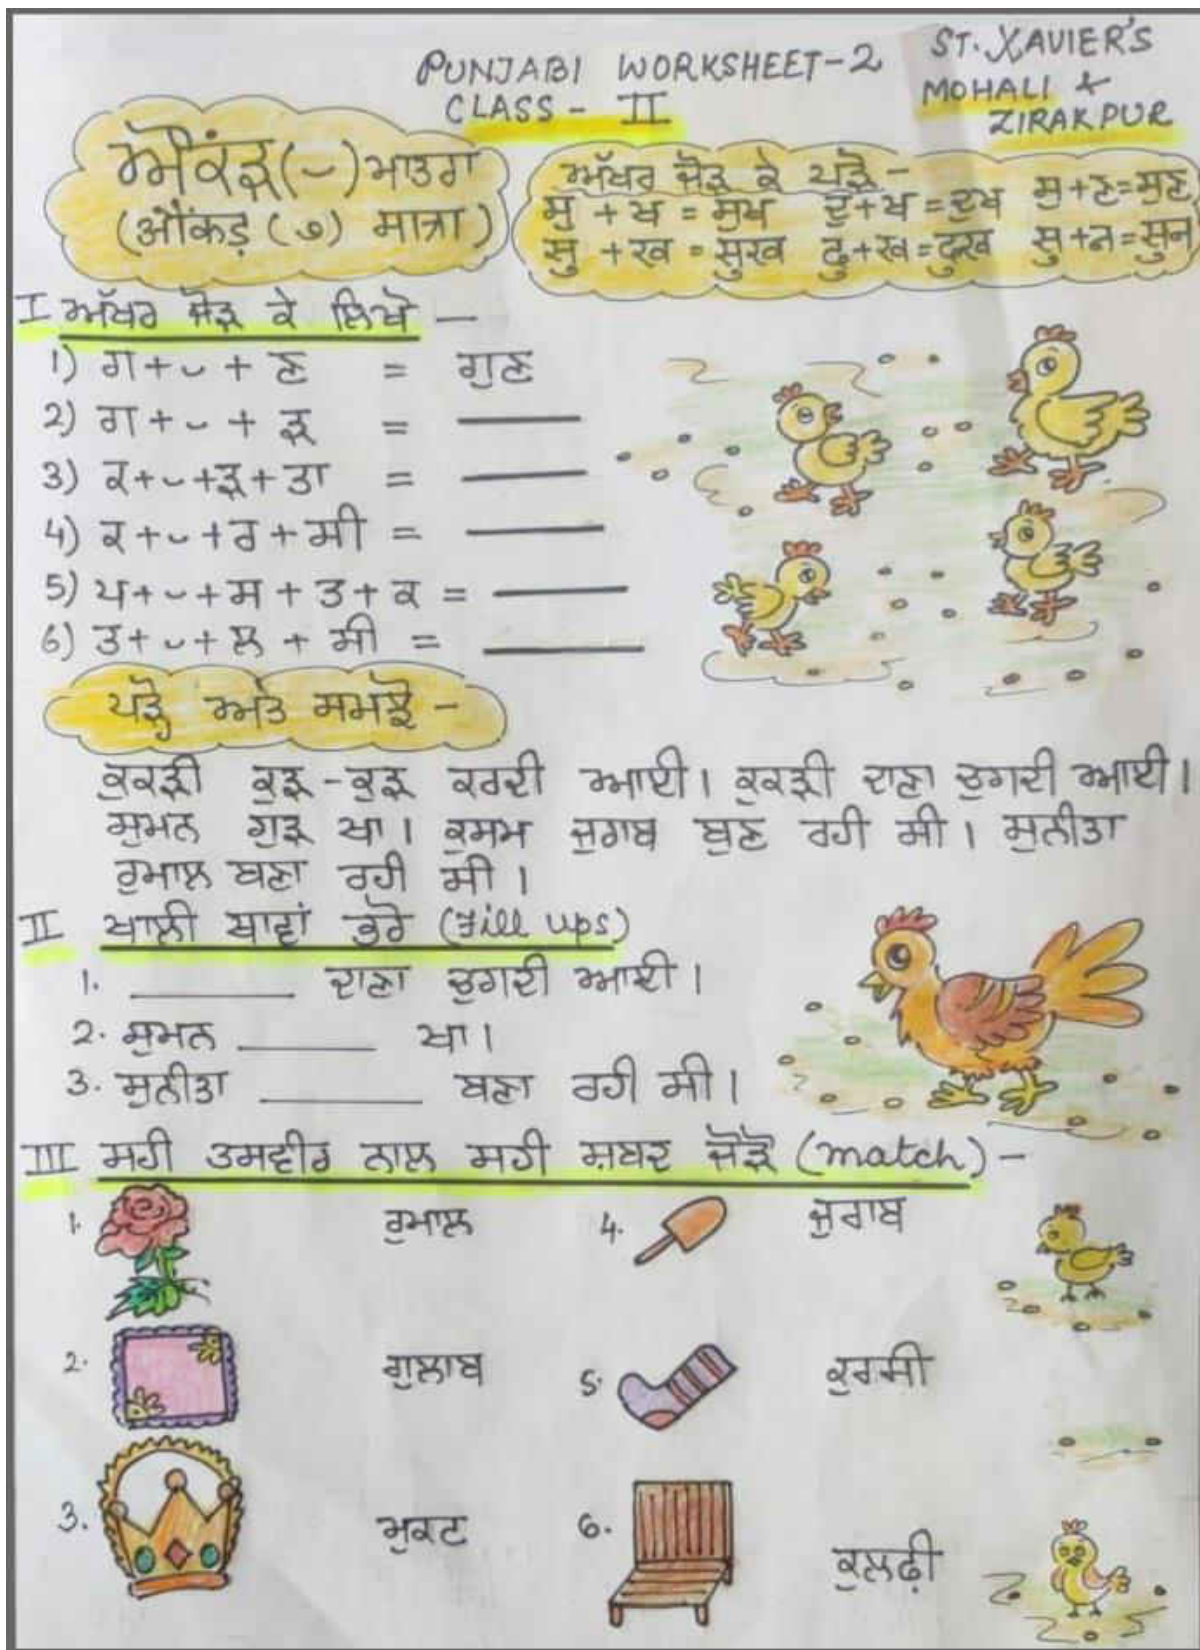 PUNJABI WORKSHEET-2
CLASS - II
ST. XAVIER'S
MOHALI &
ZIRAKPUR
ਔਂਕੜ(ੁ) ਮਾਤਰਾ
(औंकड़ (ु) मात्रा)
ਅੱਖਰ ਜੋੜ ਕੇ ਪੜੋ -
ਸੁ + ਖ = ਸੁਖ ਦੁ+ਖ = ਦੁਖ ਸੁ+ਣ=ਸੁਣ
सु + ख = सुख दु+ख = दुख सु+न=सुन
I ਅੱਖਰ ਜੋੜ ਕੇ ਲਿਖੋ —
1) ਗ+ ੁ + ਣ = ਗੁਣ
2) ਗ + ੁ + ੜ = ____
3) ਕ+ ੁ +ੜ+ਤਾ = ____
4) ਕ+ ੁ +ਰ+ਸੀ = ____
5) ਪ+ ੁ +ਸ+ਤ+ਕ = ____
6) ਤ+ ੁ +ਲ+ਸੀ = ____
ਪੜ੍ਹੋ ਅਤੇ ਸਮਝੋ -
ਕੁਕੜੀ ਕੁੜ-ਕੁੜ ਕਰਦੀ ਆਈ। ਕੁਕੜੀ ਦਾਣਾ ਚੁਗਦੀ ਆਈ।
ਸੁਮਨ ਗੁੜ ਖਾ। ਕੁਸਮ ਜੁਰਾਬ ਬੁਣ ਰਹੀ ਸੀ। ਸੁਨੀਤਾ
ਰੁਮਾਲ ਬਣਾ ਰਹੀ ਸੀ।
II ਖਾਲੀ ਥਾਵਾਂ ਭਰੋ (Fill ups)
1. ____ ਦਾਣਾ ਚੁਗਦੀ ਆਈ।
2. ਸੁਮਨ ____ ਖਾ।
3. ਸੁਨੀਤਾ ____ ਬਣਾ ਰਹੀ ਸੀ।
III ਸਹੀ ਤਸਵੀਰ ਨਾਲ ਸਹੀ ਸ਼ਬਦ ਜੋੜੋ (match) -
1. ਰੁਮਾਲ 4. ਜੁਰਾਬ
2. ਗੁਲਾਬ 5. ਕੁਰਸੀ
3. ਮੁਕਟ 6. ਕੁਲਫ਼ੀ